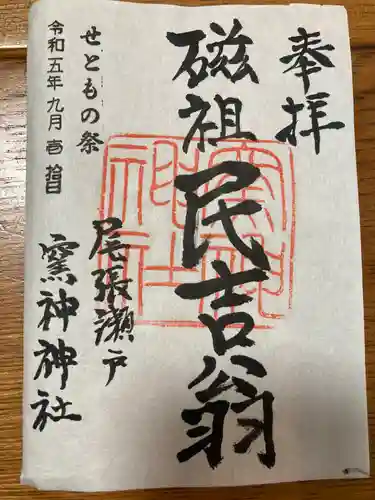 奉拝
磁祖 民吉翁
尾張瀬戸
窯神神社
せともの祭
令和五年 九月 壱拾日
窯神
神社